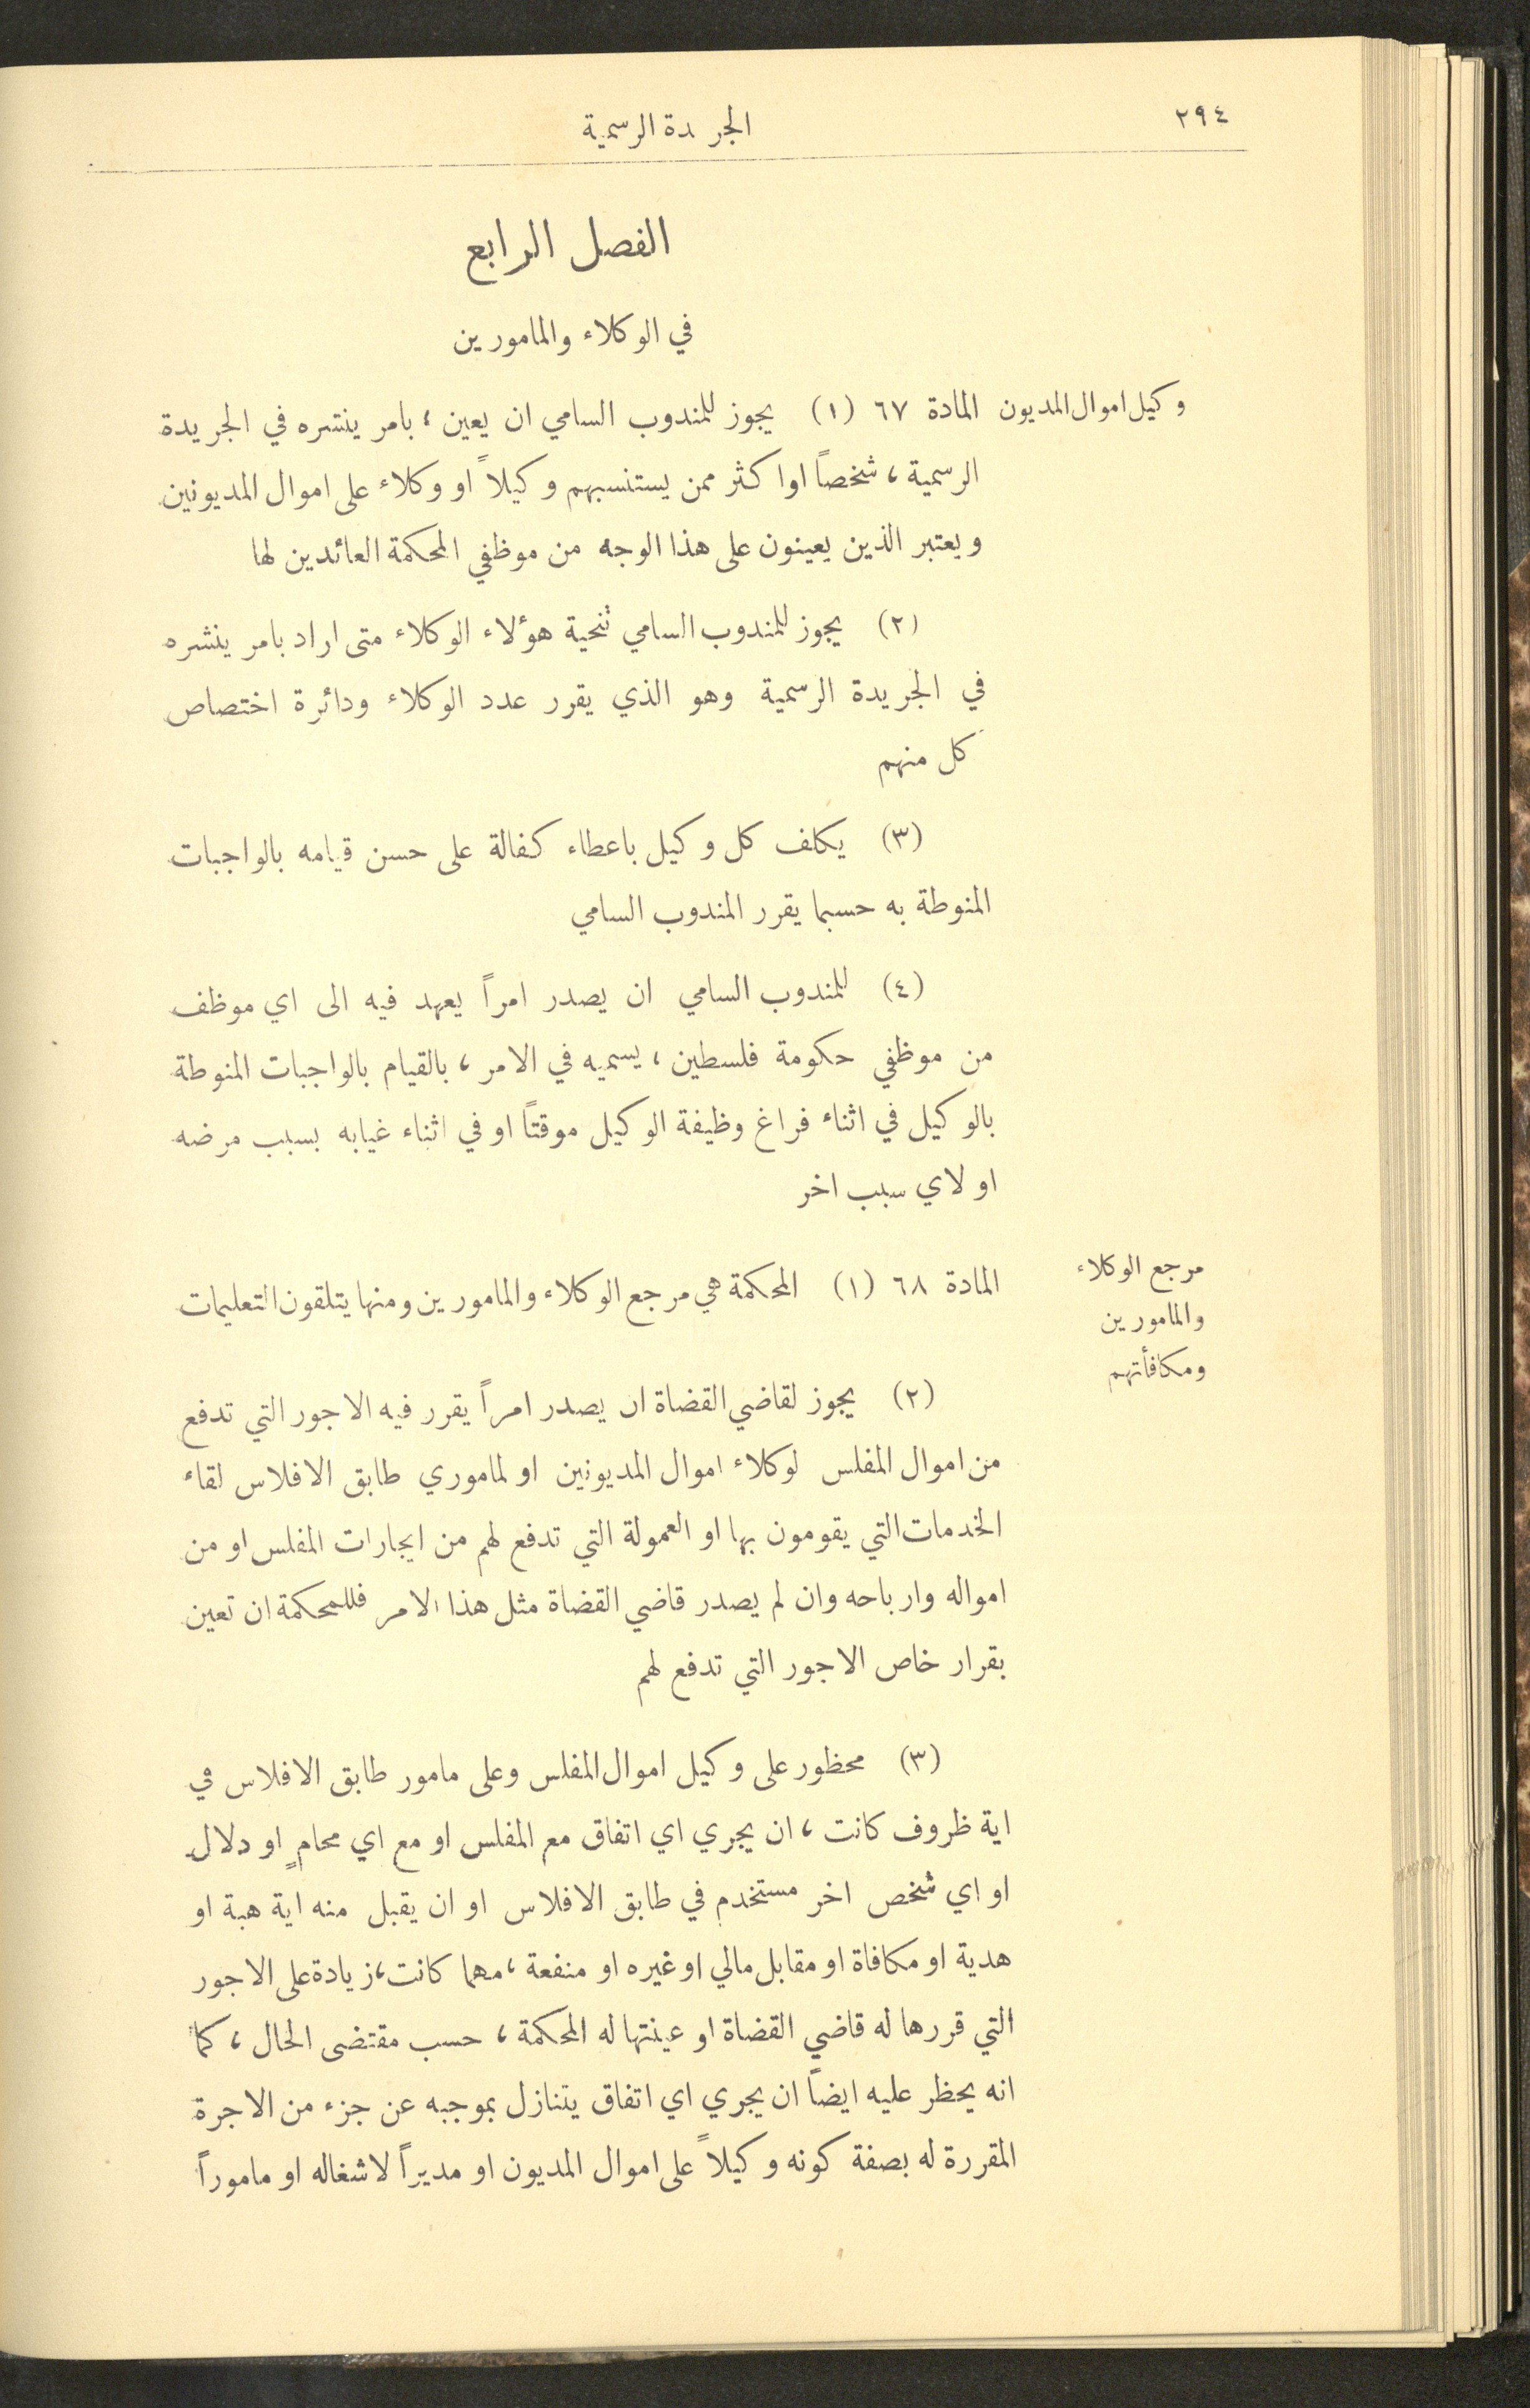 ٢٩٤
الجريدة الرسمية
الفصل الرابع
في الوكلاء والمامورين
وكيل اموال المديون
المادة ٦٧ (١) يجوز للمندوب السامي ان يعين ، بامر ينشره في الجريدة
الرسمية ، شخصاً او اكثر ممن يستنسبهم وكيلاً او وكلاء على اموال المديونين
ويعتبر الذين يعينون على هذا الوجه من موظفي المحكمة العائدين لها
(٢) يجوز للمندوب السامي تنحية هؤلاء الوكلاء متى اراد بامر ينشره
في الجريدة الرسمية وهو الذي يقرر عدد الوكلاء ودائرة اختصاص
كل منهم
(٣) يكلف كل وكيل باعطاء كفالة على حسن قيامه بالواجبات
المنوطة به حسبما يقرر المندوب السامي
(٤) للمندوب السامي ان يصدر امراً يعهد فيه الى اي موظف
من موظفي حكومة فلسطين ، يسميه في الامر ، بالقيام بالواجبات المنوطة
بالوكيل في اثناء فراغ وظيفة الوكيل موقتاً او في اثناء غيابه بسبب مرضه
او لاي سبب اخر
مرجع الوكلاء
والمامورين
ومكافأتهم
المادة ٦٨ (١) المحكمة هي مرجع الوكلاء والمامورين ومنها يتلقون التعليمات
(٢) يجوز لقاضي القضاة ان يصدر امراً يقرر فيه الاجور التي تدفع
من اموال المفلس لوكلاء اموال المديونين او لماموري طابق الافلاس لقاء
الخدمات التي يقومون بها او العمولة التي تدفع لهم من ايجارات المفلس او من
امواله وارباحه وان لم يصدر قاضي القضاة مثل هذا الامر فللمحكمة ان تعين
بقرار خاص الاجور التي تدفع لهم
(٣) محظور على وكيل اموال المفلس وعلى مامور طابق الافلاس في
اية ظروف كانت ، ان يجري اي اتفاق مع المفلس او مع اي محامٍ او دلال
او اي شخص اخر مستخدم في طابق الافلاس او ان يقبل منه اية هبة او
هدية او مكافاة او مقابل مالي او غيره او منفعة ، مهما كانت ، زيادة على الاجور
التي قررها له قاضي القضاة او عينتها له المحكمة ، حسب مقتضى الحال ، كما
انه يحظر عليه ايضاً ان يجري اي اتفاق يتنازل بموجبه عن جزء من الاجرة
المقررة له بصفة كونه وكيلاً على اموال المديون او مديراً لاشغاله او ماموراً